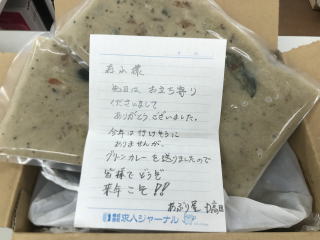 様
先日は お立ち寄り
くださいまして
ありがとうございました。
今年は行けそうに
ありませんが、
グリーンカレーを送りましたので
皆様でどうぞ
来年こそ!!
あぶり屋
求人ジャーナル